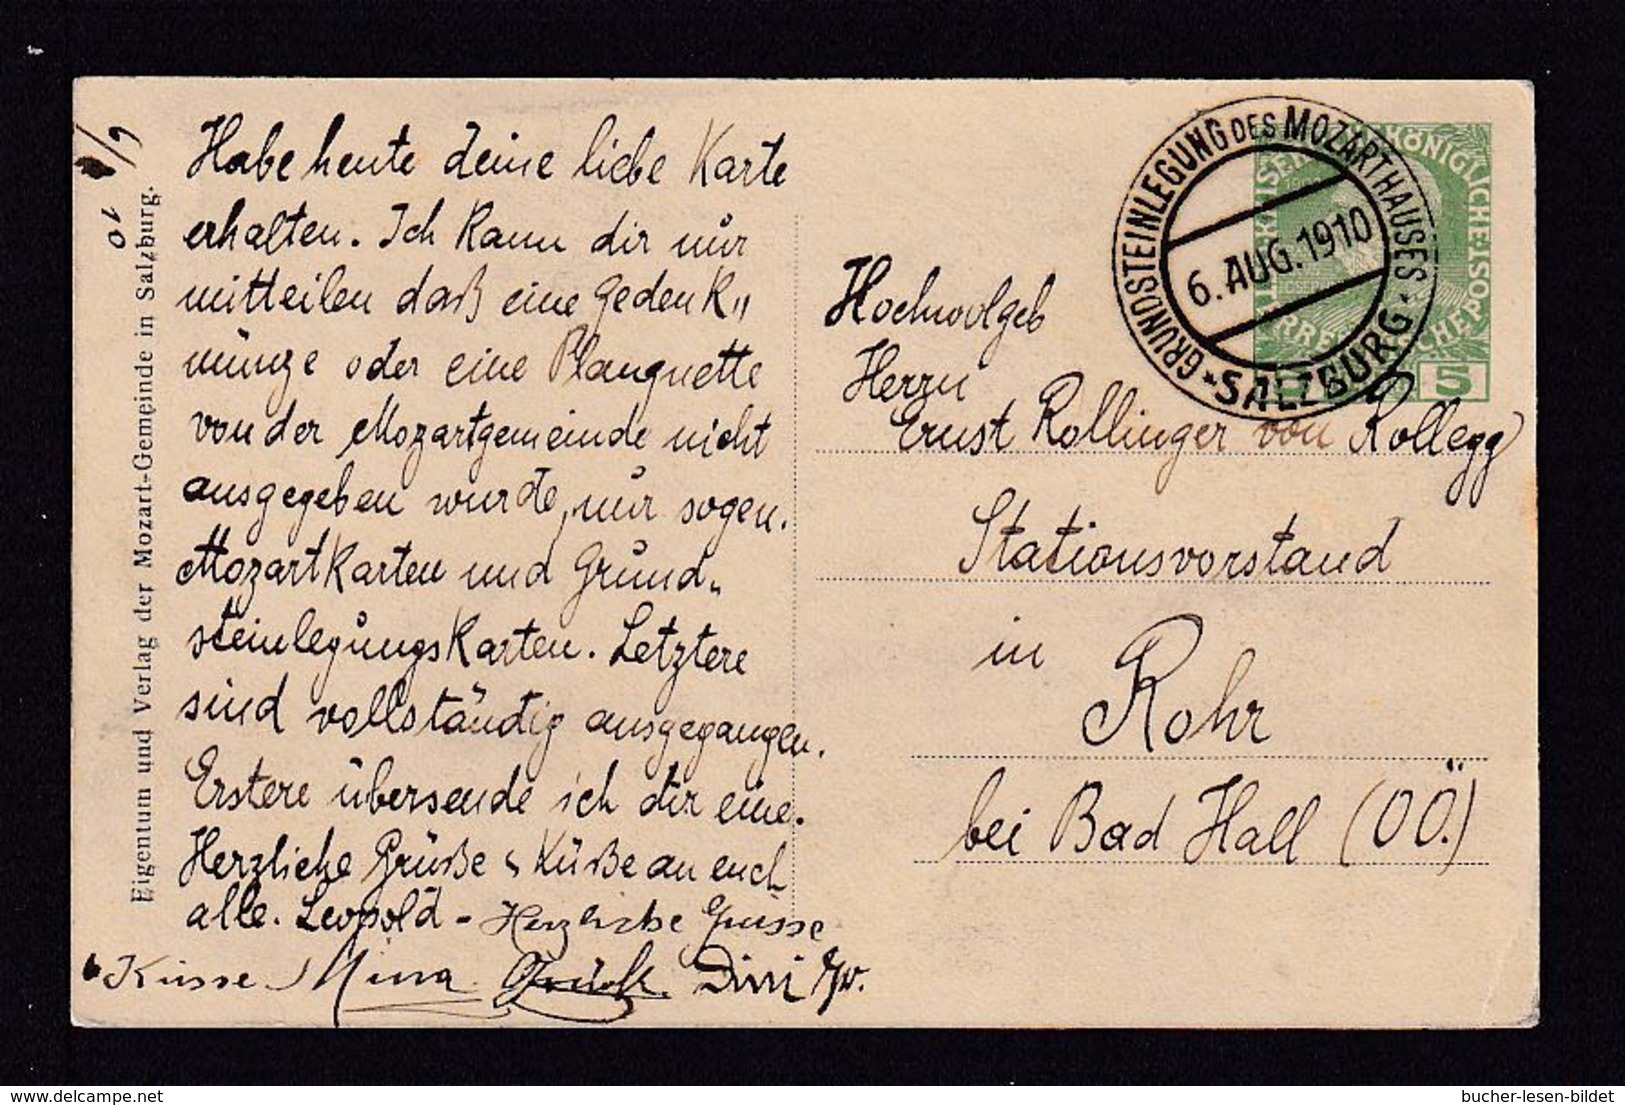 Habe heute deine liebe Karte
erhalten. Ich kann dir nur
mitteilen daß eine Gedenk„
münze oder eine Planquette
von der Mozartgemeinde nicht
ausgegeben wurde, nur sogen.
Mozartkarten und Grund„
steinlegungskarten. Letztere
sind vollständig ausgegangen.
Erstere übersende ich dir eine.
Herzliche Grüße u Küße an euch
alle. Leopold – Herzliche Grüsse
u Küsse Mina
6/9
10
Eigentum und Verlag der Mozart-Gemeinde in Salzburg.
GRUNDSTEINLEGUNG DES MOZARTHAUSES
6. AUG. 1910
* SALZBURG *
KÖNIGLICHE
POST
5
Hochwolgeb
Herrn
Ernst Rollinger von Rollegg
Stationsvorstand
in
Rohr
bei Bad Hall (OÖ.)
delcampe.net
bucher-lesen-bildet